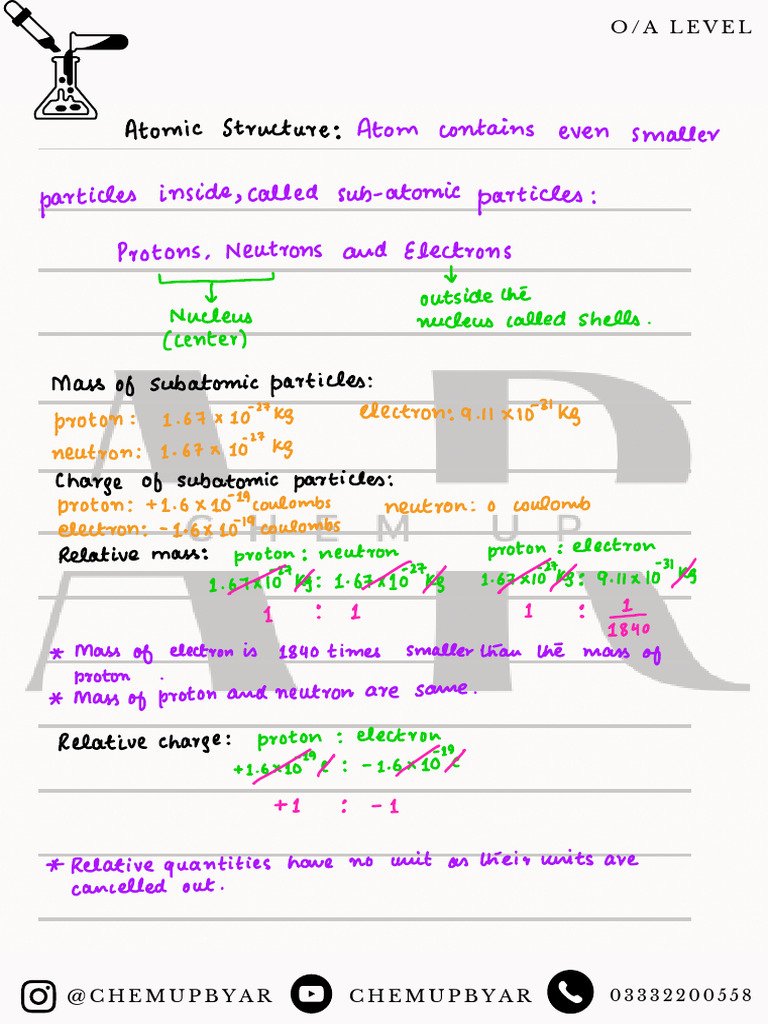 O/A LEVEL
Atomic Structure: Atom contains even smaller
particles inside, called sub-atomic particles:
Protons, Neutrons and Electrons
Nucleus
(center)
outside the
nucleus called shells.
Mass of subatomic particles:
proton: 1.67 x 10⁻²⁷ kg electron: 9.11 x 10⁻³¹ kg
neutron: 1.67 x 10⁻²⁷ kg
Charge of subatomic particles:
proton: +1.6 x 10⁻¹⁹ coulombs neutron: 0 coulomb
electron: -1.6 x 10⁻¹⁹ coulombs
CHEM UP
AR
Relative mass: proton : neutron proton : electron
1.67 x 10⁻²⁷ kg : 1.67 x 10⁻²⁷ kg 1.67 x 10⁻²⁷ kg : 9.11 x 10⁻³¹ kg
1 : 1 1 : 1/1840
* Mass of electron is 1840 times smaller than the mass of
proton .
* Mass of proton and neutron are same.
Relative charge: proton : electron
+1.6 x 10⁻¹⁹ c : -1.6 x 10⁻¹⁹ c
+1 : -1
* Relative quantities have no unit as their units are
cancelled out.
@CHEMUPBYAR CHEMUPBYAR 03332200558